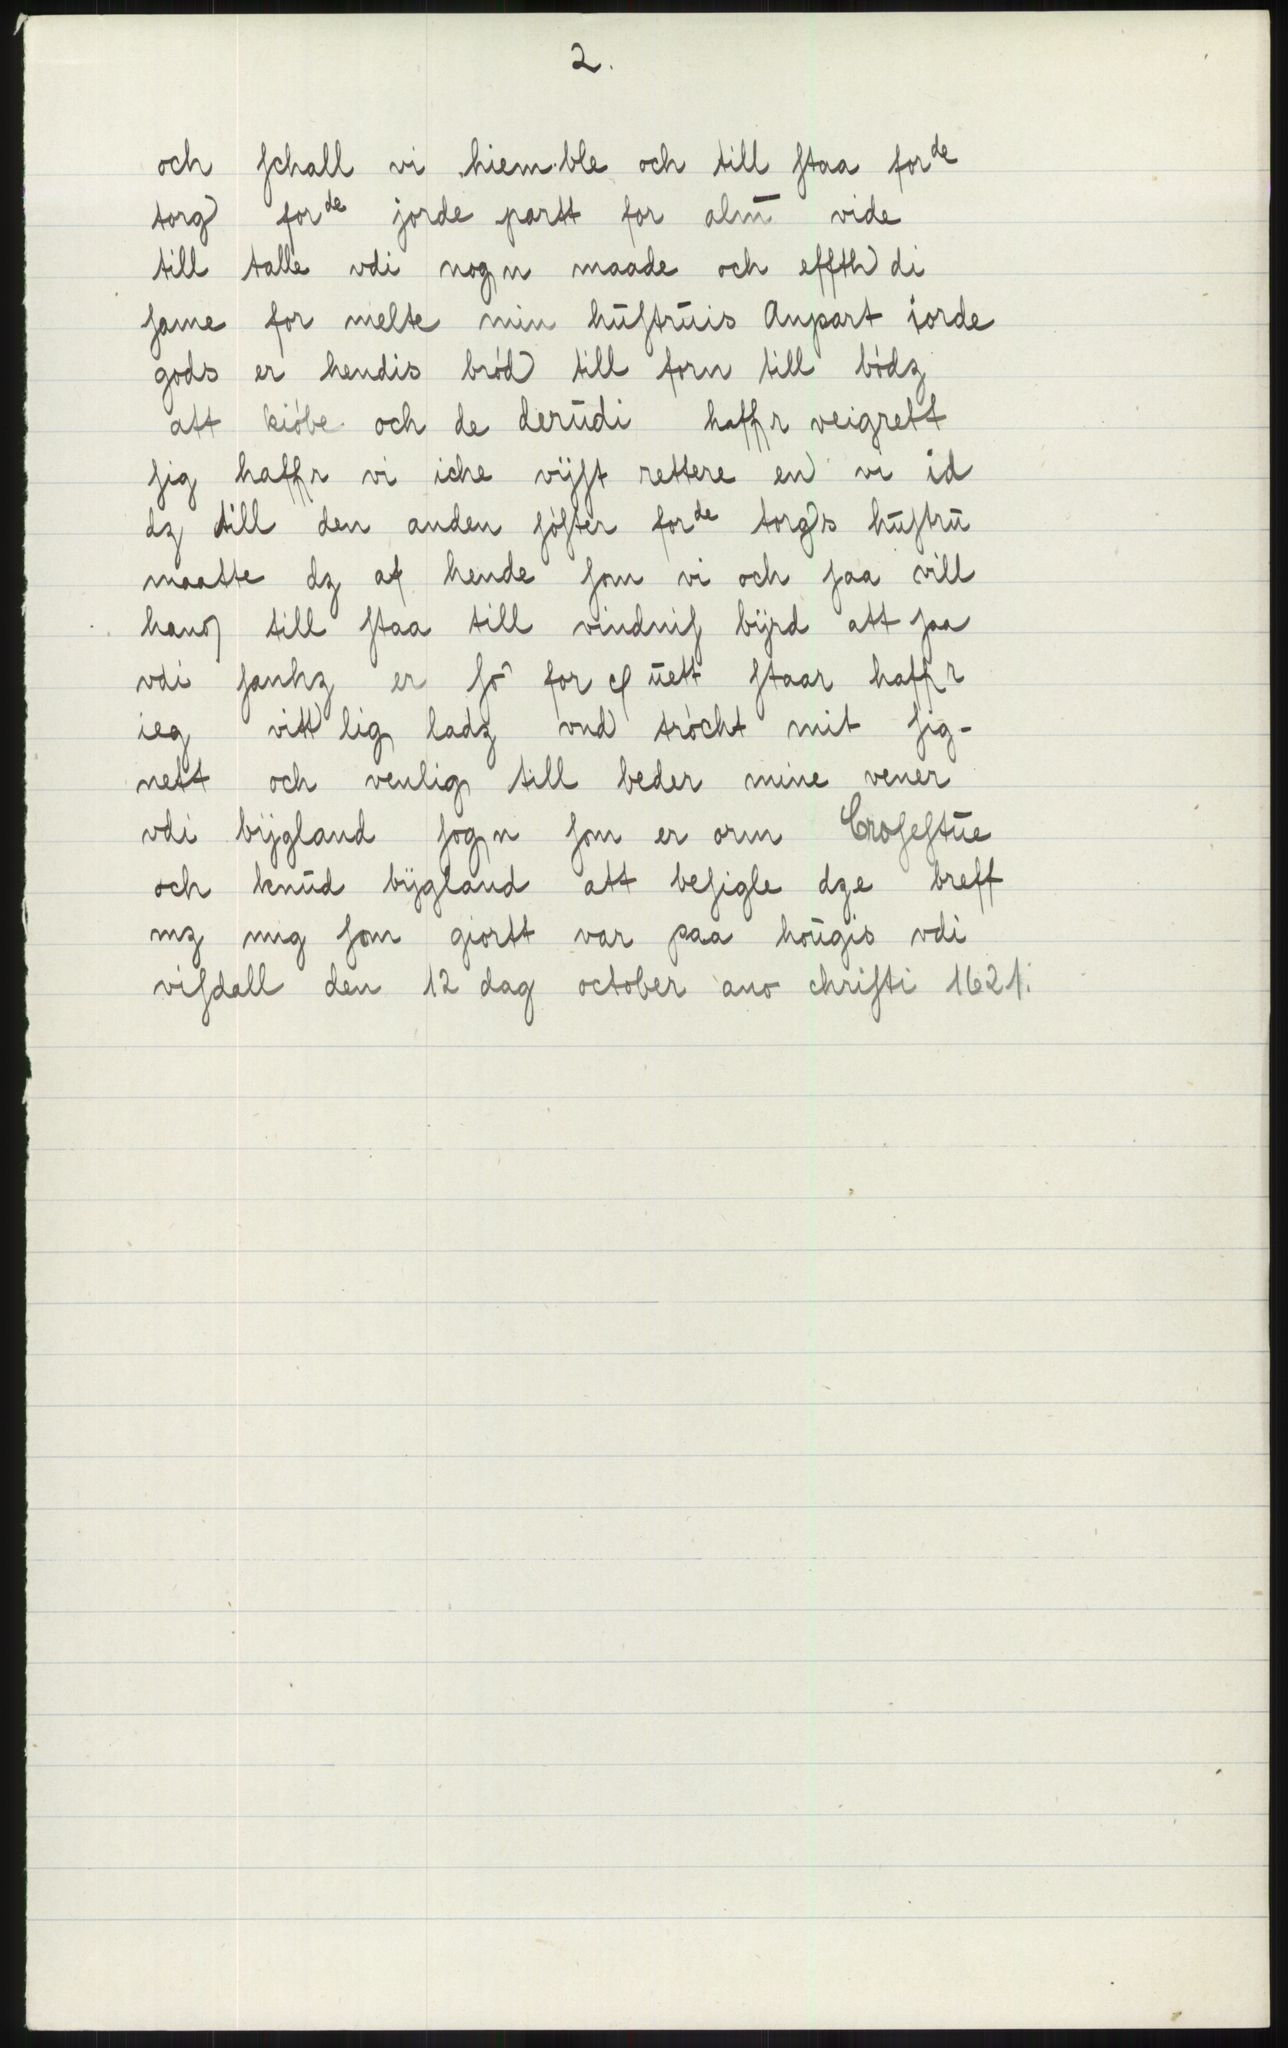 2.
och schall vi hiem.ble och till staa forde
torg forde jorde partt for alm̄ vide
till talle vdi nogn maade och effth di
same for melte min hūstrūis Anpart jorde
gods er hendis bród till forn till bódz
att kióbe och de derūdi haffr veigrett
sig haffr vi iche vijst rettere en vi id
dz till den anden sóster forde torgs hūstrū
maatte dz af hende som vi och saa vill
hanō till staa till vindnis bijrd att saa
vdi sankz er só for ūett staar haffr
ieg vitt lig ladz vnd trócht mit sig-
nett och venlig till beder mine vener
vdi bijgland sogn som er orm Crosestūe
och knūd bijgland att besigle dze breff
mz mig som giortt var paa hoūgis vdi
visdall den 12 dag october ano christi 1621.